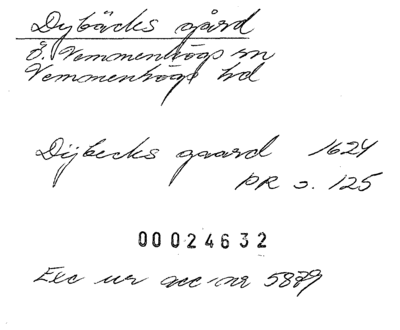 Dybäcks gård
Ö. Vemmenhögs sn
Vemmenhögs hd
Dÿbecks gaard 1624
PR s. 125
00024632
Exc ur acc-nr 5879